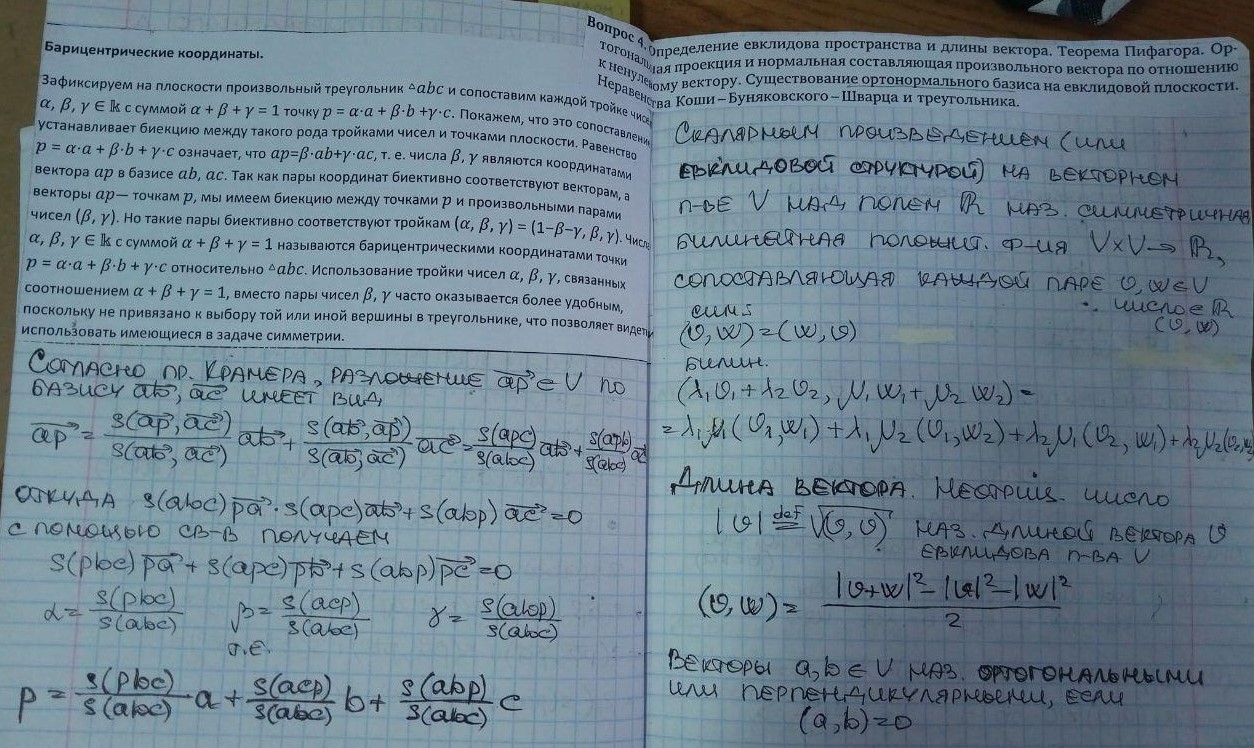 Барицентрические координаты.
Зафиксируем на плоскости произвольный треугольник △abc и сопоставим каждой тройке чисел
α, β, γ ∈ 𝕜 с суммой α + β + γ = 1 точку p = α·a + β·b + γ·c. Покажем, что это сопоставление
устанавливает биекцию между такого рода тройками чисел и точками плоскости. Равенство
p = α·a + β·b + γ·c означает, что ap=β·ab+γ·ac, т. е. числа β, γ являются координатами
вектора ap в базисе ab, ac. Так как пары координат биективно соответствуют векторам, а
векторы ap— точкам p, мы имеем биекцию между точками p и произвольными парами
чисел (β, γ). Но такие пары биективно соответствуют тройкам (α, β, γ) = (1−β−γ, β, γ). Числа
α, β, γ ∈ 𝕜 с суммой α + β + γ = 1 называются барицентрическими координатами точки
p = α·a + β·b + γ·c относительно △abc. Использование тройки чисел α, β, γ, связанных
соотношением α + β + γ = 1, вместо пары чисел β, γ часто оказывается более удобным,
поскольку не привязано к выбору той или иной вершины в треугольнике, что позволяет видеть
использовать имеющиеся в задаче симметрии.
Согласно пр. Крамера, разложение ap⃗ ∈ V по
базису ab⃗, ac⃗ имеет вид
ap⃗ = s(ap⃗, ac⃗)/s(ab⃗, ac⃗) ab⃗ + s(ab⃗, ap⃗)/s(ab⃗, ac⃗) ac⃗ = s(apc)/s(abc) ab⃗ + s(apb)/s(abc) ac⃗
откуда s(abc) pa⃗ · s(apc) ab⃗ + s(abp) ac⃗ = 0
с помощью св-в получаем
s(pbc) pa⃗ + s(apc) pb⃗ + s(abp) pc⃗ = 0
α = s(pbc)/s(abc) β = s(acp)/s(abc) γ = s(abp)/s(abc)
т.е.
p = s(pbc)/s(abc) a + s(acp)/s(abc) b + s(abp)/s(abc) c
Вопрос 4. Определение евклидова пространства и длины вектора. Теорема Пифагора. Ор-
тогональная проекция и нормальная составляющая произвольного вектора по отношению
к ненулевому вектору. Существование ортонормального базиса на евклидовой плоскости.
Неравенства Коши – Буняковского – Шварца и треугольника.
Скалярным произведением (или
евклидовой структурой) на векторном
п-ве V над полем ℝ наз. симметричная
билинейная положит. ф-ия V×V → ℝ,
сопоставляющая каждой паре v, w ∈ V
число ∈ ℝ
(v, w)
сим:
(v, w) = (w, v)
билин.
(λ₁v₁ + λ₂v₂, μ₁w₁ + μ₂w₂) =
= λ₁μ₁(v₁, w₁) + λ₁μ₂(v₁, w₂) + λ₂μ₁(v₂, w₁) + λ₂μ₂(v₂, w₂)
Длина вектора. Неотриц. число
|v| def= √(v, v) наз. длиной вектора v
евклидова п-ва V
(v, w) = (|v+w|² − |v|² − |w|²)/2
Векторы a, b ∈ V наз. ортогональными
или перпендикулярными, если
(a, b) = 0